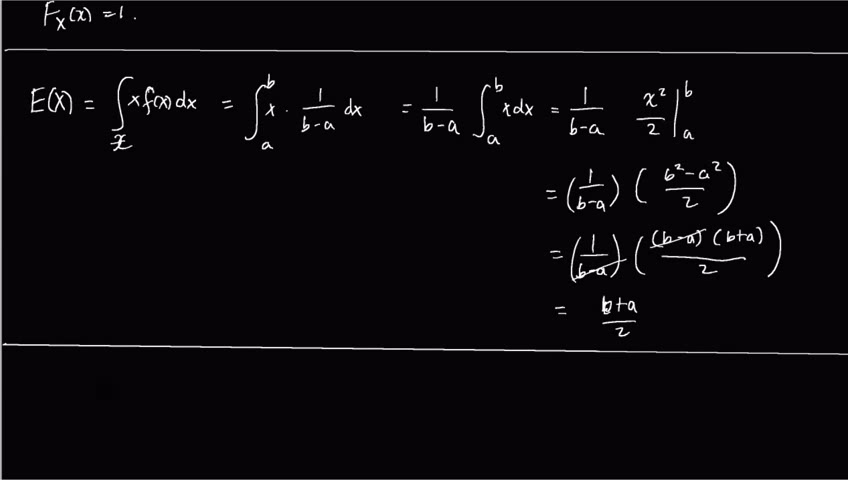 F_X(x) = 1.
E(X) = ∫_𝒳 x f(x) dx = ∫_a^b x · 1/(b-a) dx = 1/(b-a) ∫_a^b x dx = 1/(b-a) x²/2 |_a^b
= (1/(b-a)) ((b² - a²)/2)
= (1/(b-a)) ((b-a)(b+a)/2)
= (b+a)/2